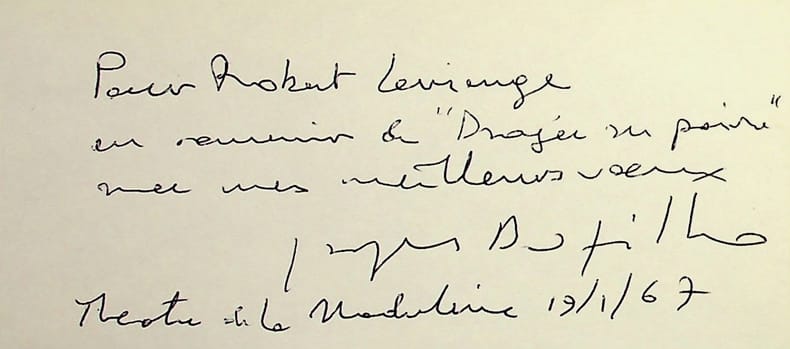 Pour Robert Lavrange
en souvenir de "Dragées au poivre"
avec mes meilleurs vœux
Jacques Dufilho
Théâtre de la Madeleine 19/1/67